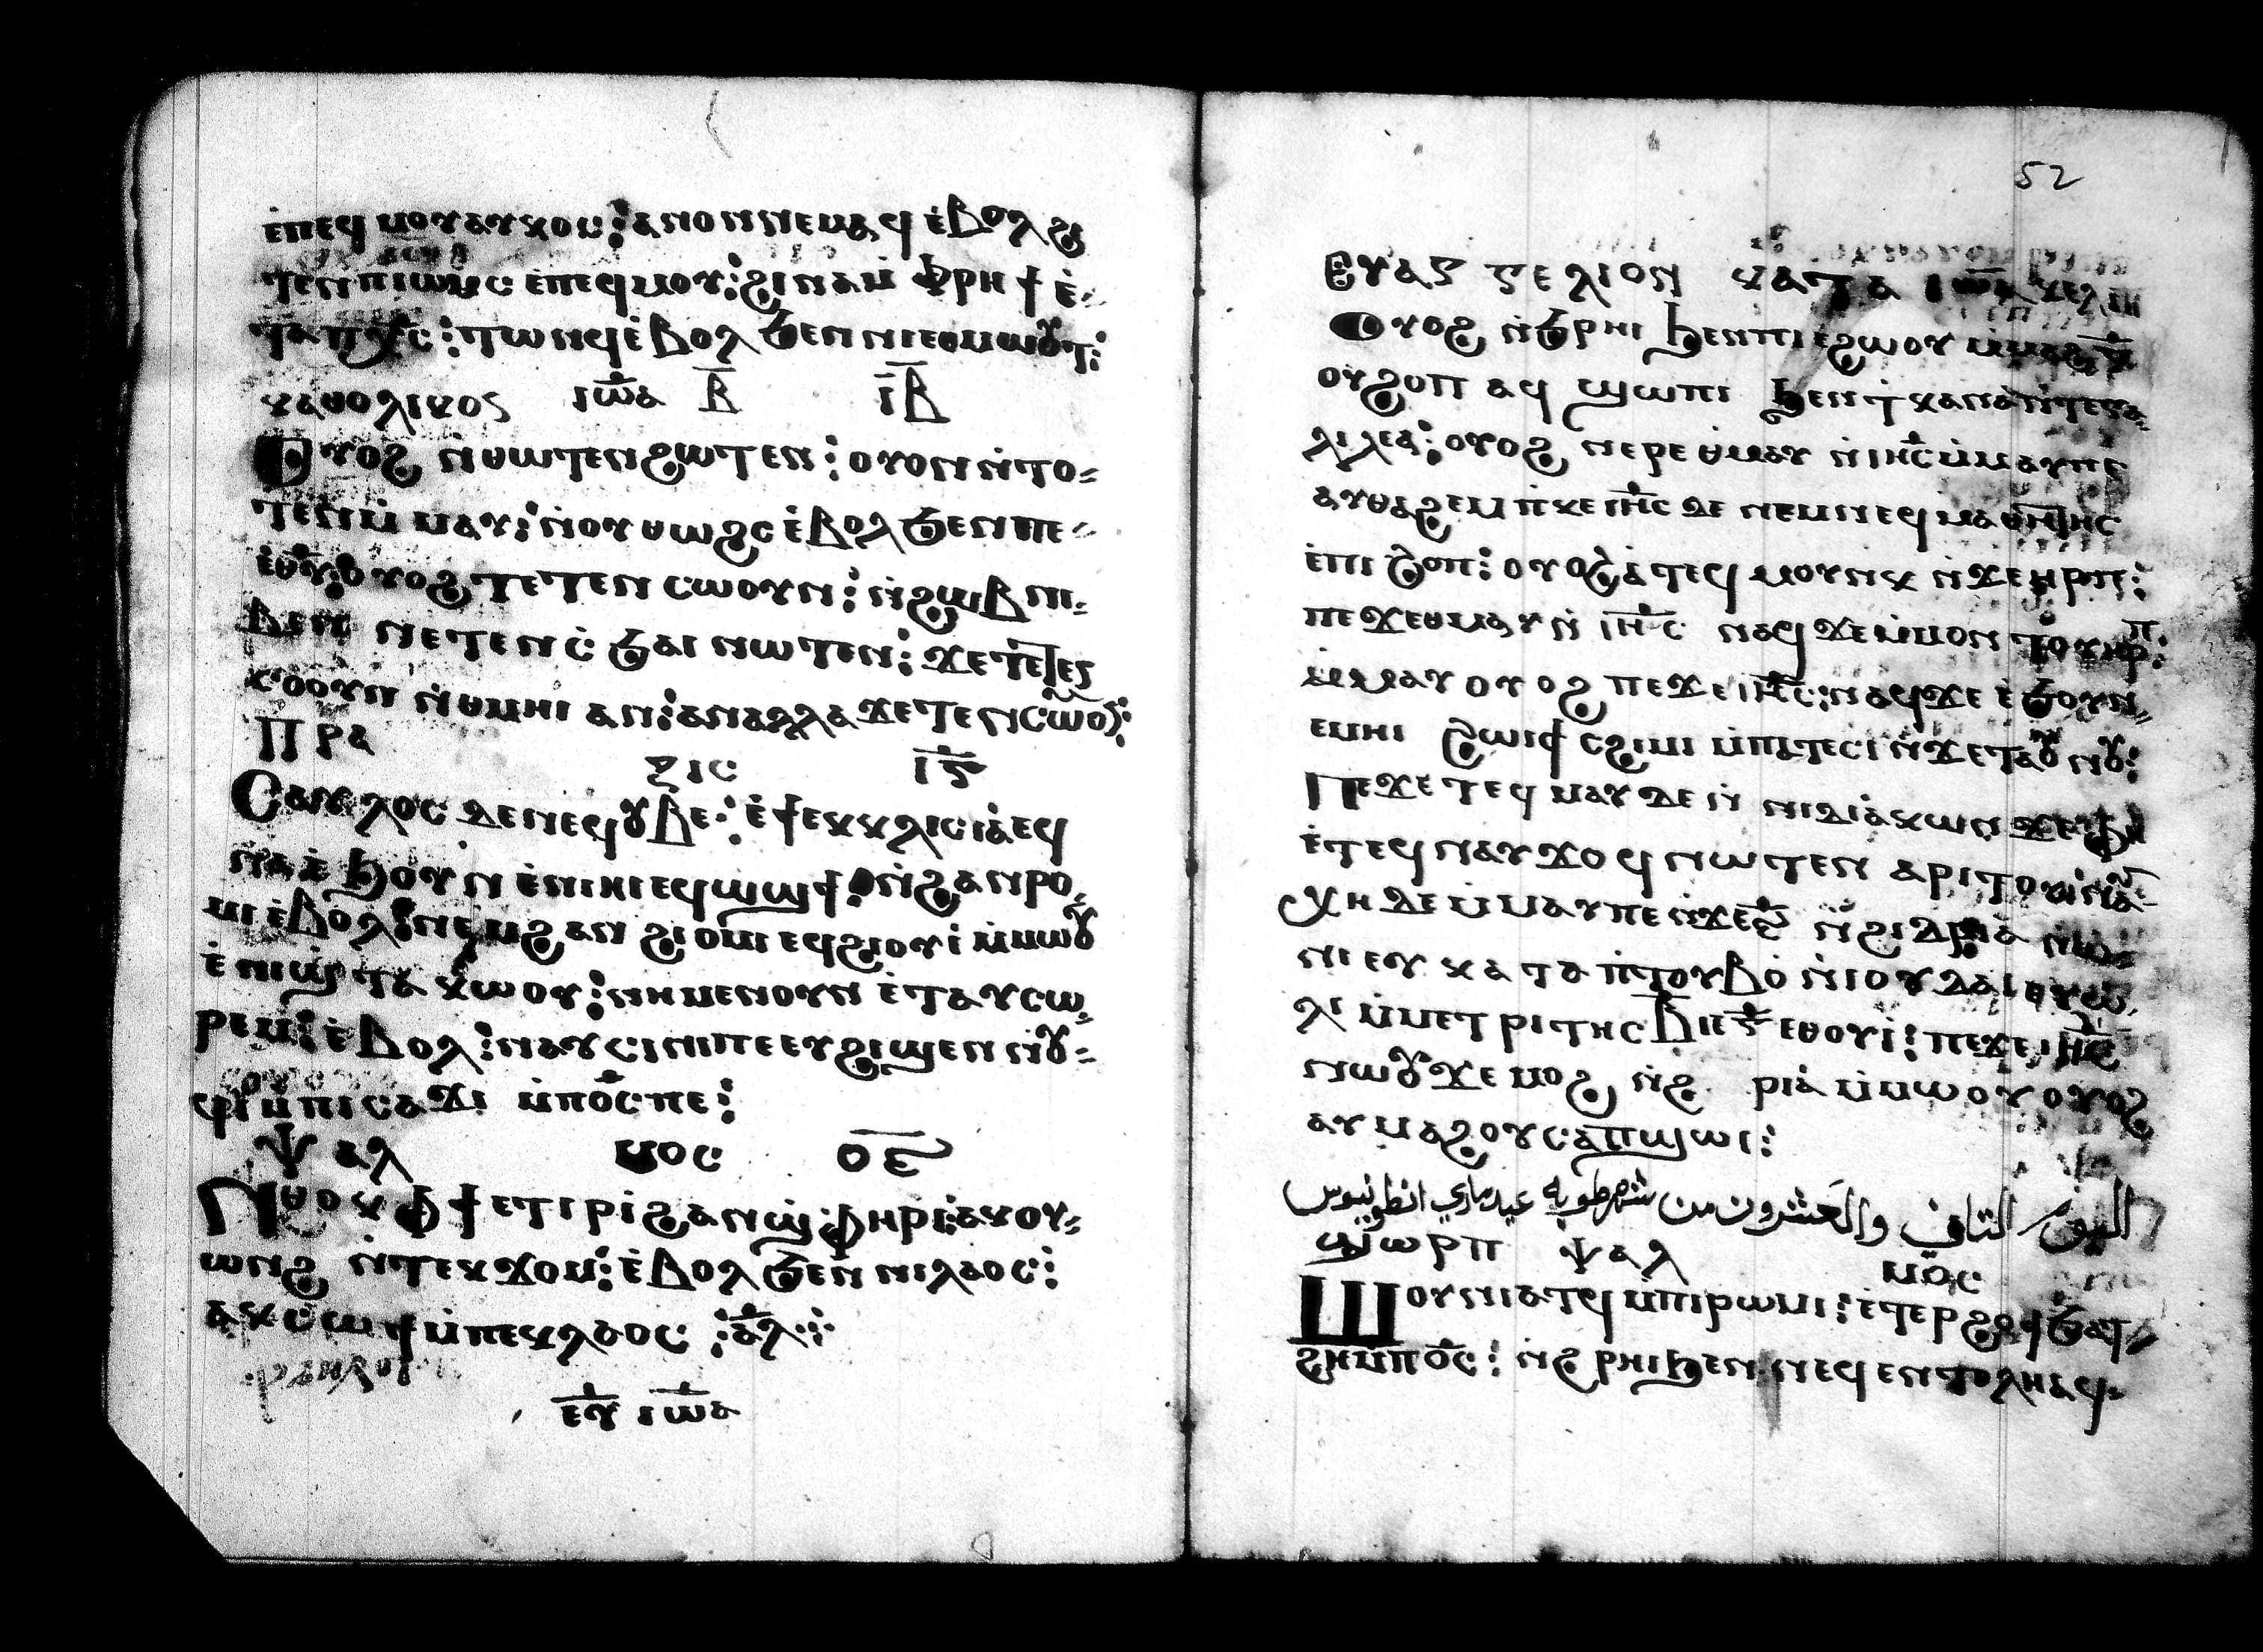 ⲉ̀ⲡⲉϥⲙⲟⲩⲁⲩⲕⲟⲥ⁝ ⲁⲛⲟⲛⲛⲉⲙⲁϥ ⲉ̀ⲃⲟⲗϩⲓ
ⲧⲉⲛⲡⲓⲱⲙⲥ ⲉ̀ⲡⲉϥⲙⲟⲩ⁝ ϩⲓⲛⲁⲙ̀ ⲫⲣⲏϯ ⲉ̀-
ⲧⲁⲡⲭ̅ⲥ̅⁝ ⲧⲱⲛϥⲉ̀ⲃⲟⲗ ϧⲉⲛ ⲛⲓⲉⲑⲙⲱⲟⲩⲧ⁝
ⲕⲁⲑⲟⲗⲓⲕⲟⲥ ⲓⲱ̅ⲁ ⲃ̅ ⲓ̅ⲃ̅
Ⲟⲩⲟϩ ⲛ̀ⲑⲱⲧⲉⲛϩⲱⲧⲉⲛ⁝ ⲟⲩⲟⲛⲛ̀ⲧⲟ-
ⲧⲉⲛⲙ̀ⲙⲁⲩ⁝ ⲛ̀ⲟⲩⲑⲱϩⲥ ⲉ̀ⲃⲟⲗϧⲉⲛⲡⲉ-
ⲉ̀ⲑⲩ̅⁝ ⲟⲩⲟϩⲧⲉⲧⲉⲛⲥⲱⲟⲩⲛ⁝ ⲛ̀ϩⲱⲃⲛⲓ-
ⲃⲉⲛ ⲛⲉⲧⲉⲛⲥ̀ϧⲁⲓ ⲛⲱⲧⲉⲛ⁝ ϫⲉⲧⲉⲧⲉⲥ
ⲥⲟⲟⲩⲛ ⲛ̀ⲑⲙⲏⲓ ⲁⲛ⁝ ⲁⲛⲁⲗⲗⲁ ϫⲉⲧⲉⲛⲥⲱⲟⲩ⁝
Ⲡⲣⲁ
ⲝⲓⲥ ⲓ̅ⲋ̅
Ⲥⲁⲩⲗⲟⲥ ⲇⲉⲛⲉϥⲟⲩⲃⲉ⁝ ⲉ̀ϯⲉⲕⲕⲗⲓⲥⲓⲁ̀ⲉϥ
ⲛⲁⲉ̀ϧⲟⲩⲛ ⲉ̀ⲛⲓⲏⲓⲉϥϣϣϯ⁝ ⲛ̀ϩⲁⲛⲣⲟ-
ⲙⲓⲉ̀ⲃⲟⲗ⁝ ⲛⲉⲙϩⲁⲛ ϩⲓⲟⲙⲓ ⲉϥϩⲓⲟⲩⲓ̀ ⲙ̀ⲙⲱⲟⲩ
ⲉ̀ⲡⲓϣⲧⲁ ⲕⲱⲟⲩ⁝ ⲛⲏⲙⲉⲛⲟⲩⲛ ⲉ̀ⲧⲁⲩⲥⲱ-
ⲣⲉⲙ⁝ ⲉ̀ⲃⲟⲗ⁝ ⲛⲁⲩⲥⲓⲛⲓⲡⲉⲉⲩϩⲓϣⲉⲛ ⲛⲟⲩ-
ϥⲓ ⲙ̀ⲡⲓⲥⲁϫⲓ ⲙ̀ⲡⲟ̅ⲥ̅ⲡⲉ⁝
Ⲯⲁⲗ ⲙⲟⲥ ⲟ̅ⲉ̅
Ⲛⲑⲟⲕ ⲫϯ ⲉⲧⲓⲣⲓ̀ ϩⲁⲛϣ̀ⲫⲏⲣⲓ⁝ ⲁⲕⲟⲩ-
ⲱⲛϩ ⲛ̀ⲧⲉⲕϫⲟⲙ⁝ ⲉ̀ⲃⲟⲗϧⲉⲛ ⲛⲓⲗⲁⲟⲥ⁝
ⲁⲕⲥⲱϯⲙ̀ⲡⲉⲕⲗⲁⲟⲥ ⁝ ⲁ̅ⲗ̅⁝
ⲉⲩ̅ ⲓⲱ̅ⲁ
52
Ⲉⲩⲁⲅⲅⲉⲗⲓⲟⲛ ⲕⲁⲧⲁ ⲓⲱ̅ⲁ
Ⲟⲩⲟϩ ⲛ̀ϧⲣⲏⲓ ϧⲉⲛⲡⲓⲉϩⲱⲟⲩ ⲙ̀ⲙⲁϩⲅ̅
ⲟⲩϩⲟⲡ ⲁϥ ϣⲱⲡⲓ ϧⲉⲛϯⲕⲁⲛⲁⲛ̀ⲧⲉⲅⲁ-
ⲗⲓⲗⲉⲁ̀⁝ ⲟⲩⲟϩ ⲛⲉⲣⲉ ⲑⲙⲁⲩ ⲛ̀ⲓⲏ̅ⲥ̅ⲙ̀ⲙⲁⲩⲡⲉ
ⲁⲩⲑⲁϩⲉⲙ ⲡ̀ⲕⲉⲓⲏ̅ⲥ̅ ⲇⲉ ⲛⲉⲙⲛⲉϥⲙⲁⲑⲏⲧⲏⲥ
ⲉ̀ⲡⲓϩⲟⲡ⁝ ⲟⲩⲟϩⲉ̀ⲧⲉϥ ⲙⲟⲩⲛⲕ ⲛ̀ϫⲉⲏⲣⲡ⁝
ⲡⲉϫⲉⲑⲙⲁⲩ ⲛ̀ ⲓⲏ̅ⲥ̅ ⲛⲁϥ ϫⲉⲙ̀ⲙⲟⲛ ⲧⲟⲩⲏⲣⲡ⁝
ⲙ̀ⲙⲁⲩ ⲟⲩⲟϩ ⲡⲉϫⲉⲓⲏ̅ⲥ̅⁝ ⲛⲁϥϫⲉ ⲉ̀ϧⲟⲩⲛ-
ⲉⲙⲏⲓ ϩⲱⲓϯ ⲥϩⲓⲙⲓ ⲙ̀ⲡⲁⲧⲉⲥⲓ̀ ⲛ̀ϫⲉⲧⲁⲟⲩⲛⲟⲩ⁝
Ⲡⲉϫⲉ ⲧⲉϥ ⲙⲁⲩ ⲇⲉ ⲛ̀ ⲛⲓⲇⲓⲁ̀ⲕⲱⲛ ϫⲉ ⲫⲏ
ⲉ̀ⲧⲉϥⲛⲁⲩϫⲟϥ ⲛⲱⲧⲉⲛ ⲁⲣⲓⲧⲟⲩ
ⲭⲏ ⲇⲉ ⲙ̀ⲙⲁⲩⲡⲉ ⲛ̀ϫⲉⲋ̅ ⲛ̀ϩⲓⲇⲣⲓⲁ ⲛⲱ-
ⲛⲓ ⲉⲩ ⲕⲁⲧⲁ ⲡ̀ⲧⲟⲩⲃⲟ̀ ⲛ̀ⲓⲟⲩⲇⲁⲓ ⲉⲩⲱ
ⲗⲓ ⲙ̀ⲙⲉⲧⲣⲓⲧⲏⲥ ⲃ̅ⲓⲉⲅ̅ ⲉⲑⲟⲩⲓ̀⁝ ⲡⲉϫⲉⲓⲏ̅ⲥ̅
ⲛⲱⲟⲩϫⲉ ⲙⲟϩ ⲛ̀ϩ ⲣⲓⲁ̀ ⲙ̀ⲙⲱⲟⲩ ⲟⲩⲟϩ
ⲁⲩⲙⲁϩⲟⲩⲥⲁⲡϣⲱⲓ⁝
اليوم التاني والعشرون من شهر طوبه عيد ماري انطونيوس
ϣⲱⲣⲡ ⲯⲁⲗ ⲙⲟⲥ
Ϣⲟⲩⲛⲓⲁⲧϥ ⲙ̀ⲡⲓⲣⲱⲙⲓ⁝ ⲉ̀ⲧⲉⲣϩⲟϯϧⲁⲧ-
ϩⲏⲙ̀ⲡⲟ̅ⲥ̅⁝ ⲛ̀ϩⲣⲏⲓϧⲉⲛ ⲛⲉϥⲉⲛⲧⲟⲗⲏⲁϥ-